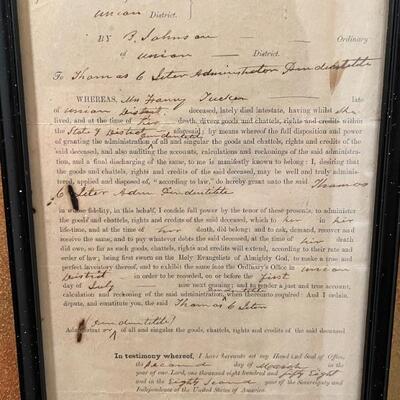 Union
District.
BY B. Johnson Ordinary
of Union District.
To Thomas C Seter Administrator
WHEREAS, Mrs Franny Tucker late
of Union District deceased, lately died intestate, having whilst she
lived, and at the time of her death, divers goods and chattels, rights and credits within the
State & District aforesaid; by means whereof the full disposition and power
of granting the administration of all and singular the goods, chattels, rights and credits of the
said deceased, and also auditing the accounts, calculations and reckonings of the said administra-
tion, and a final discharging of the same, to me is manifestly known to belong; I, desiring that
the goods and chattels, rights and credits of the said deceased, may be well and truly adminis-
tered, applied and disposed of, "according to law," do hereby grant unto the said Thomas
C Seter Adm
in whose fidelity, in this behalf, I confide full power by the tenor of these presents, to administer
the goods and chattels, rights and credits of the said deceased, which to her in her
life-time, and at the time of her death, did belong; and to ask, demand, recover and
receive the same, and to pay whatever debts the said deceased, at the time of her death
did owe, so far as such goods, chattels, rights and credits will extend, according to their rate and
order of law; being first sworn on the Holy Evangelists of Almighty God, to make a true and
perfect inventory thereof, and to exhibit the same into the Ordinary's Office in Union
District in order to be recorded, on or before the first
day of July now next ensuing; and to render a just and true account,
calculation and reckoning of the said administration, when thereunto required: And I ordain,
depute, and constitute you, the said Thomas C Seter
Administrat or of all and singular the goods, chattels, rights and credits of the said deceased
In testimony whereof, I have hereunto set my Hand and Seal of Office,
this Second day of March in the
year of our Lord, one thousand eight hundred and fifty Eight
and in the Eighty Second year of the Sovereignty and
Independence of the United States of America.